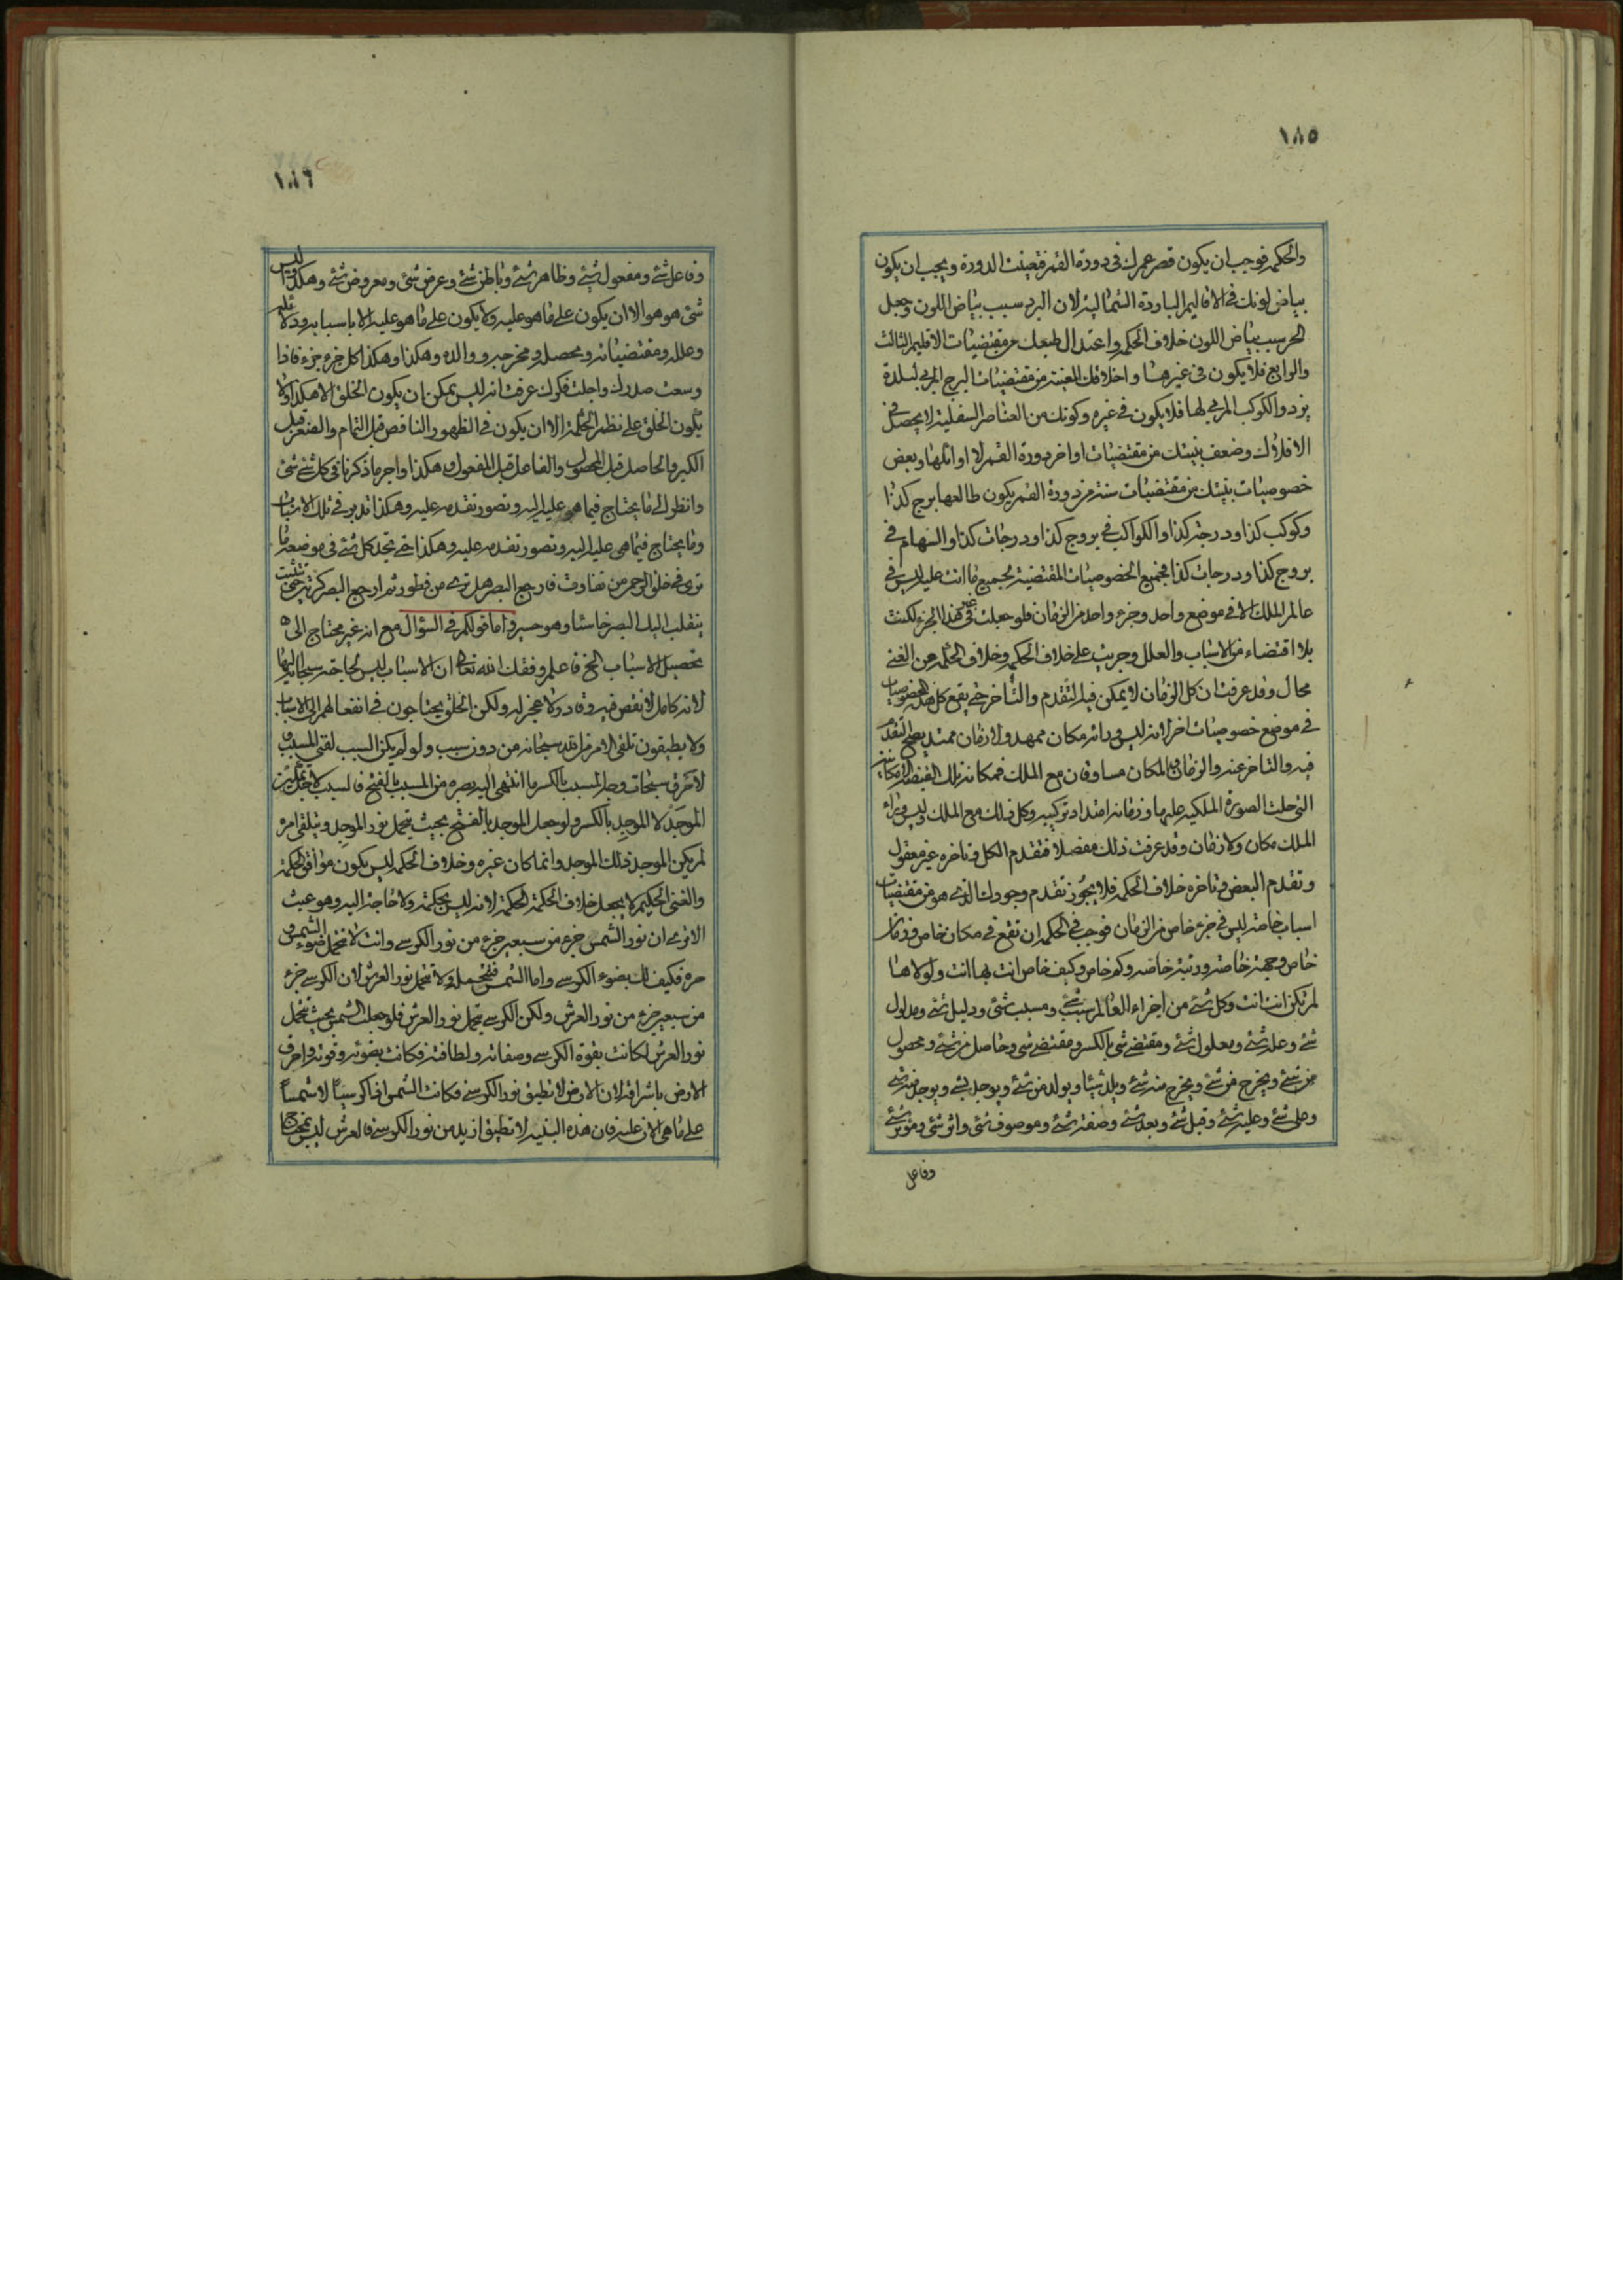 ١٨٥
والحكمة فوجب ان يكون قصر عمرك في دورة القمر فتعينت الدورة ويجب ان يكون
بياض لونك في الاقاليم الباردة الشمالية لان البرد سبب بياض اللون وجعل
الحر سبب بياض اللون خلاف الحكمة واعتدال طبعك من مقتضيات الاقليم الثالث
والرابع فلا يكون في غيرهما واخلاقك المعينة من مقتضيات البرج المربي لبلدة
يزد والكوكب المربي لها فلا يكون في غيره وكونك من العناصر السفلية لا يحصل في
الافلاك وضعف بنيتك من مقتضيات اواخر دورة القمر لا اوائلها وبعض
خصوصيات بنيتك من مقتضيات سنة من دورة القمر يكون طالعها برج كذا
وكوكب كذا ودرجة كذا والكواكب في بروج كذا ودرجات كذا والسهام في
بروج كذا ودرجات كذا فجميع الخصوصيات المقتضية لجميع ما انت عليه ليس في
عالم الملك الا في موضع واحد وجزء واحد من الزمان فلو جعلت في غير هذا الجزء لكنت
بلا اقتضاء من الاسباب والعلل وجريت على خلاف الحكمة وخلاف الحكمة من الغني
محال وقد عرفت ان كل الزمان لا يمكن فيه التقدم والتأخر حتى يقع كل هذه الخصوصيات
في موضع خصوصيات اخر لانه ليس ورائه مكان ممهد ولا زمان ممتد يصح التقدم
فيه والتاخر عنه والزمان والمكان مساوقان مع الملك فمكانه تلك القبضة الامكانية
التي حلت الصورة الملكية عليها وزمانه امتداد تركيبه وكل ذلك مع الملك وليس وراء
الملك مكان ولا زمان وقد عرفت ذلك مفصلا فتقدم الكل وتاخره غير معقول
وتقدم البعض وتاخره خلاف الحكمة فلا يجوز تقدم وجودك الذي هو من مقتضيات
اسباب خاصة ليس في جزء خاص من الزمان فوجب في الحكمة ان تقع في مكان خاص وزمان
خاص وجهة خاصة ورتبة خاصة وكم خاص وكيف خاص انت بها انت ولولاها
لم تكن انت انت وكل شئ من اجزاء العالم سبب شئ ومسبب شئ ودليل شئ ومدلول
شئ وعلة شئ ومعلول شئ ومقتضي شئ بالكسر ومقتضى شئ وحاصل من شئ ومحصول
من شئ ويخرج من شئ ويخرج منه شئ ويلد شيئا ويولد من شئ ويوجد بشئ ويوجد منه شئ
وعلى شئ وعليه شئ وقبل شئ وبعد شئ وصفة شئ وموصوف شئ واثر شئ ومؤثر شئ
وفاعل
١٨٦
وفاعل شئ ومفعول شئ وظاهر شئ وباطن شئ وعرض شئ ومعروض شئ وهكذا وليس
شئ هو هو الا ان يكون على ما هو عليه ولا يكون على ما هو عليه الا باسبابه ودلائله
وعلله ومقتضياته ومحصله ومخرجه ووالده وهكذا وهكذا كل جزء جزء فاذا
وسعت صدرك واجلت فكرك عرفت انه ليس يمكن ان يكون الخلق الا هكذا ولا
يكون الخلق على نظم الحكمة الا ان يكون في الظهور الناقص قبل التمام والصغير قبل
الكبير والحاصل قبل المحصول والفاعل قبل المفعول وهكذا واجر ما ذكرنا في كل شئ شئ
وانظر الى ما يحتاج فيما هو عليه اليه وتصور تقدمه عليه وهكذا تدبر في تلك الاسباب
وما يحتاج فيما هي عليه اليه وتصور تقدمه عليه وهكذا حتى تجد كل شئ في موضعه ما
ترى في خلق الرحمن من تفاوت فارجع البصر هل ترى من فطور ثم ارجع البصر كرتين
ينقلب اليك البصر خاسئا وهو حسير واما قولكم في السؤال مع انه غير محتاج الى
تحصيل الاسباب الخ فاعلم وفقك الله تعالى ان الاسباب ليس لحاجته سبحانه اليها
لانه كامل لا نقص فيه وقادر لا عجز له ولكن الخلق يحتاجون في انفعالهم الى الاسباب
ولا يطيقون تلقي الامر من الله سبحانه من دون سبب ولو لم يكن السبب لفني المسبب و
لاحرق سبحات وجه المسبب بالكسر ما انتهى اليه بصره من المسبب بالفتح فالسبب لاجل تمكين
الموجَد لا الموجِد بالكسر ولو جعل الموجد بالفتح بحيث يتحمل نور الموجِد ويتلقى امره
لم يكن الموجد ذلك الموجد وانما كان غيره وخلاف الحكمة ليس يكون موافق الحكمة
والغني الحكيم لا يجعل خلاف الحكمة الحكمة لانه ليس بحكمة ولا حاجة اليه وهو عبث
الا ترى ان نور الشمس جزء من سبعين جزء من نور الكرسي وانت لا تتحمل ضوء الشمس و
حره فكيف لك بضوء الكرسي واما الشمس فتتحمله ولا تتحمل نور العرش لان الكرسي جزء
من سبعين جزء من نور العرش ولكن الكرسي يتحمل نور العرش فلو جعلت الشمس بحيث تتحمل
نور العرش لكانت بقوة الكرسي وصفائه ولطافته فكانت بضوئه وقوته واحرق
الارض باشراقه لان الارض لا تطيق نور الكرسي فكانت الشمس اذا كرسيا لا شمسا
على ما هي الان عليه فان هذه البنية لا تطيق ازيد من نور الكرسي فالعرش ليس بمحتاج